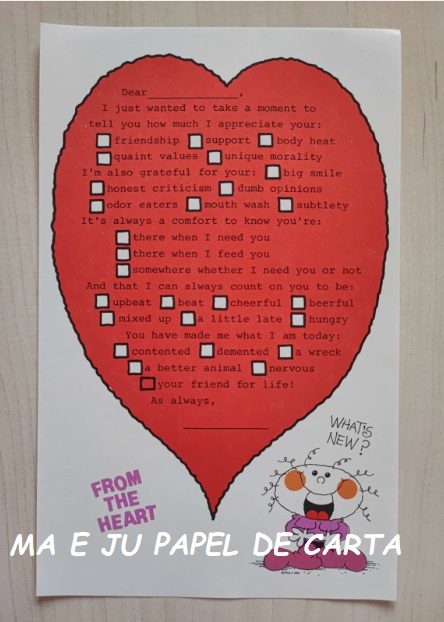 Dear______________,
I just wanted to take a moment to
tell you how much I appreciate your:
friendship support body heat
quaint values unique morality
I'm also grateful for your: big smile
honest criticism dumb opinions
odor eaters mouth wash subtlety
It's always a comfort to know you're:
there when I need you
there when I feed you
somewhere whether I need you or not
And that I can always count on you to be:
upbeat beat cheerful beerful
mixed up a little late hungry
You have made me what I am today:
contented demented a wreck
a better animal nervous
your friend for life!
As always,
WHAT'S
NEW?
FROM
THE
HEART
MA E JU PAPEL DE CARTA